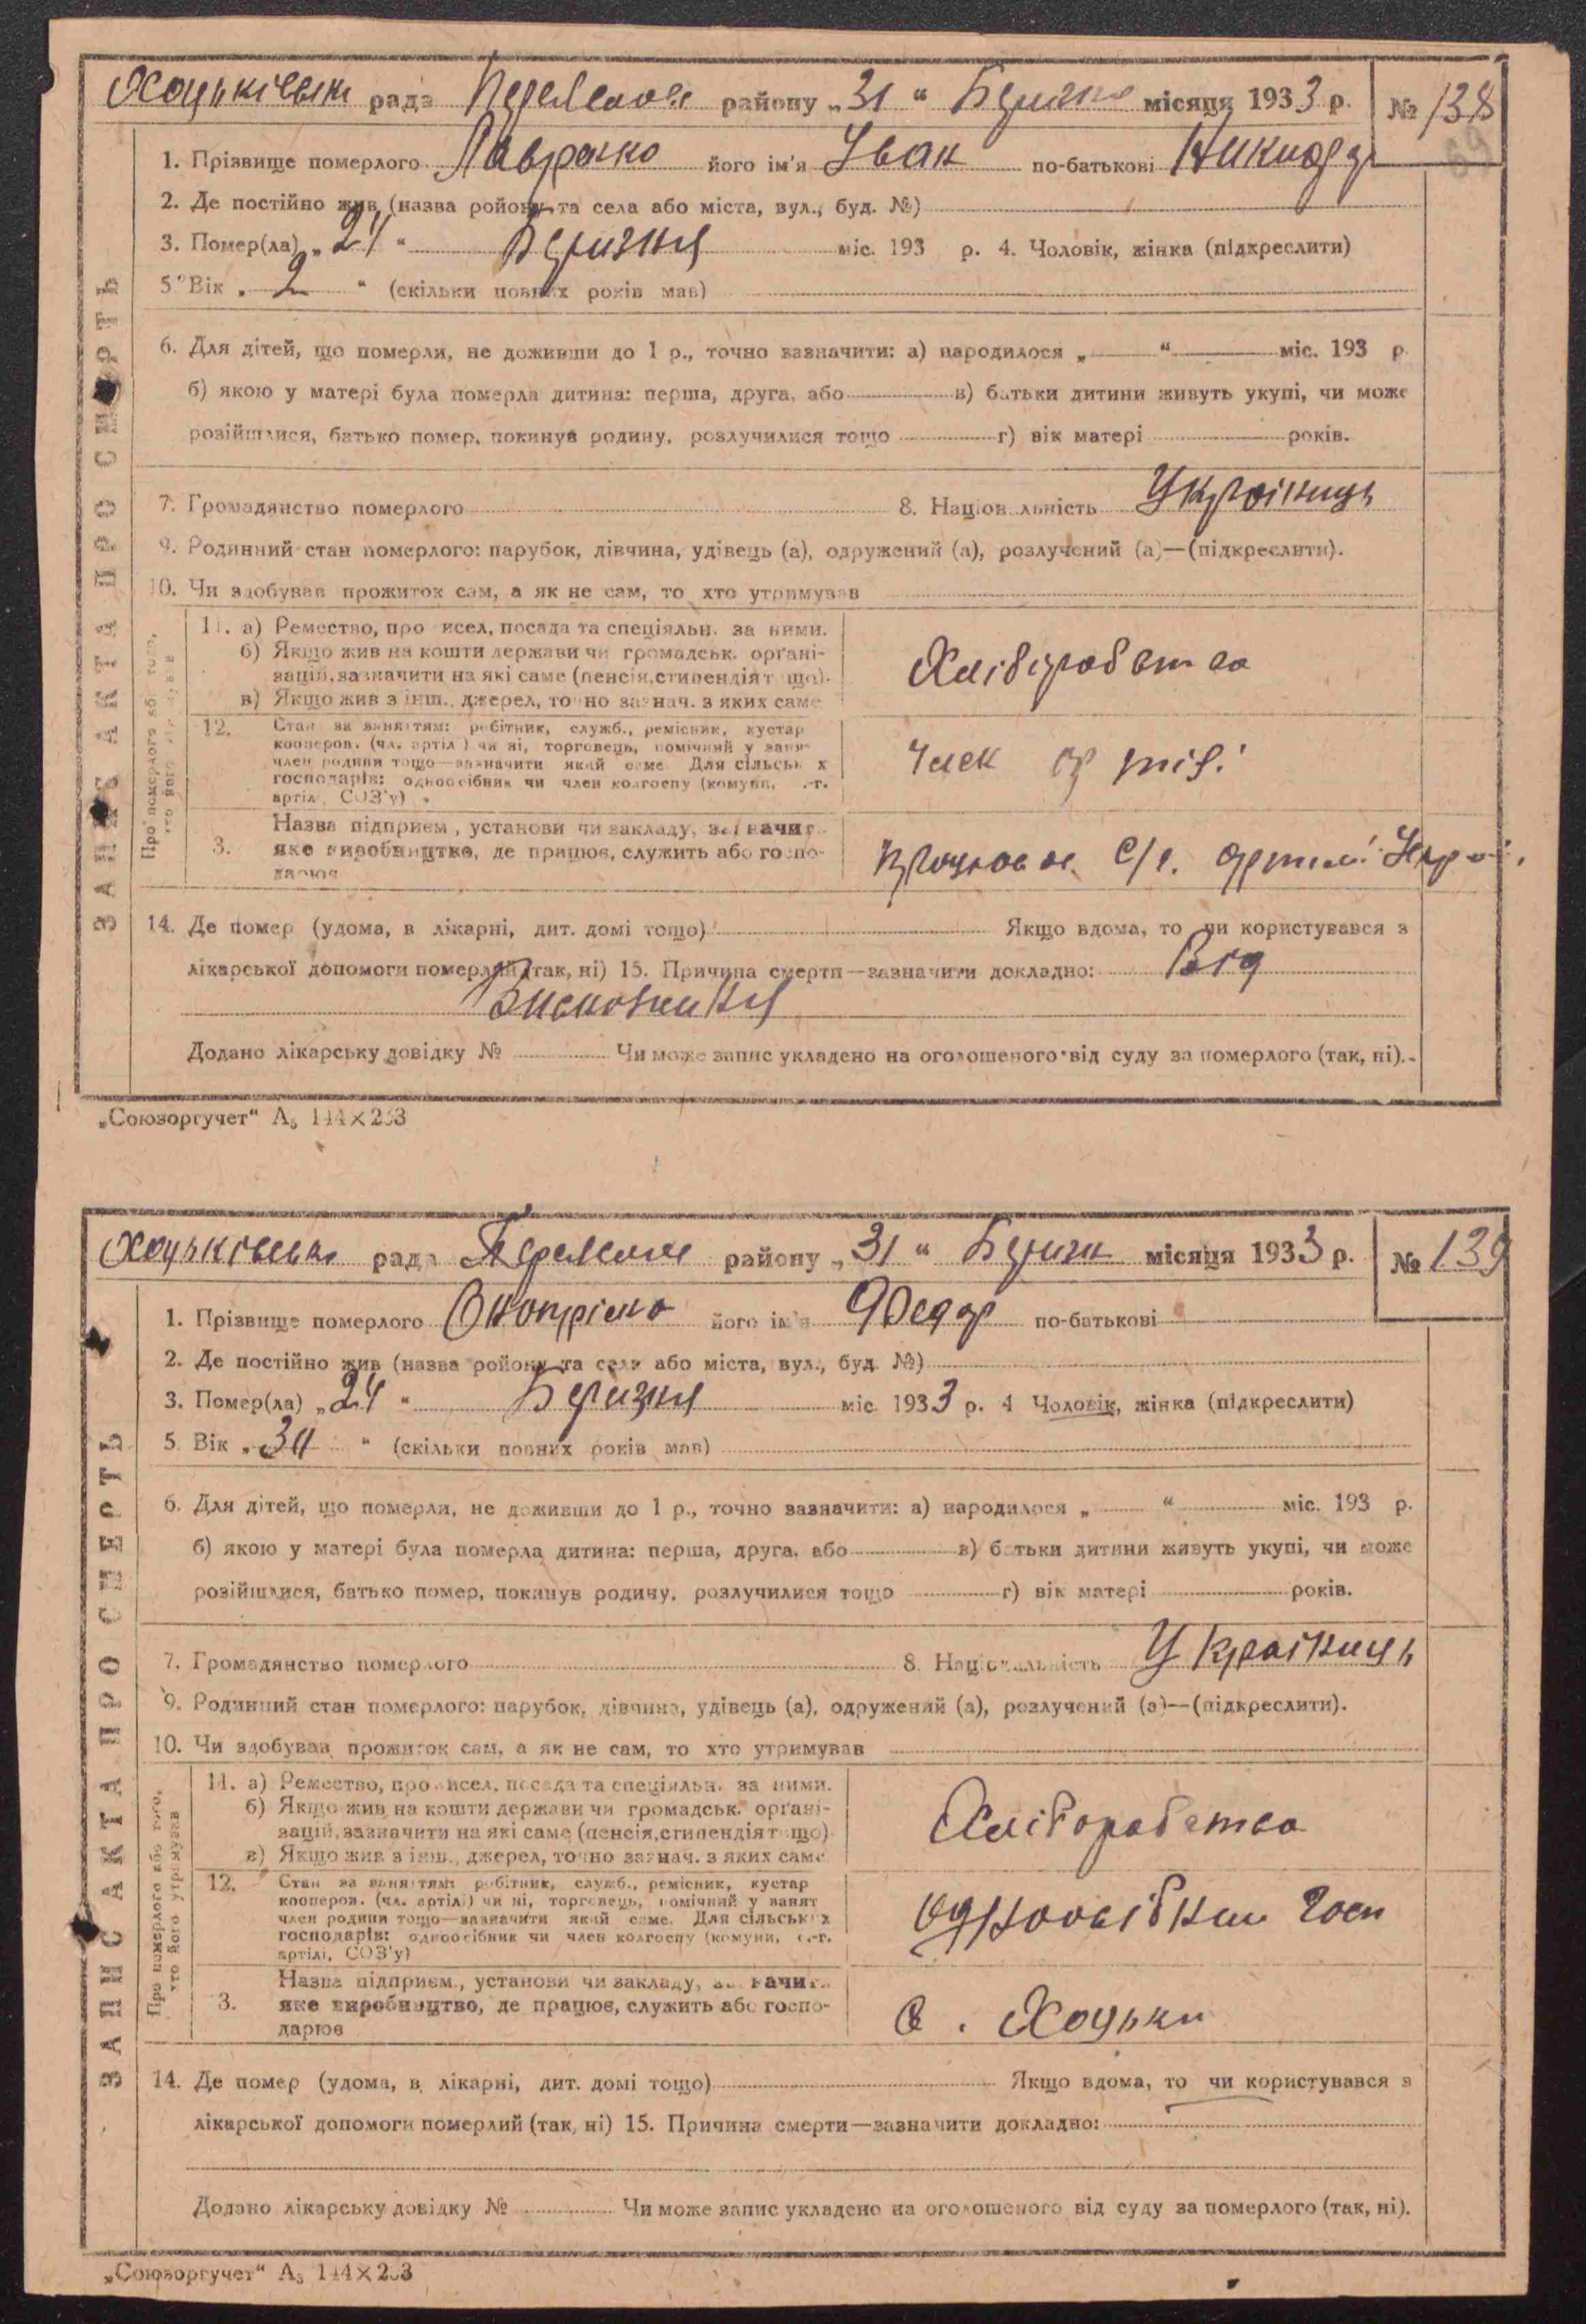 Хоцьківська рада Переяслав району „31“ Березня місяця 1933 р. № 138
69
1. Прізвище померлого Лавренко його ім'я Іван по-батькові Никифор
2. Де постійно жив (назва району та села або міста, вул., буд. №)
3. Помер(ла) „24“ Березня міс. 193 р. 4. Чоловік, жінка (підкреслити)
5. Вік „2“ (скільки повних років мав)
6. Для дітей, що померли, не доживши до 1 р., точно зазначити: а) народилося „ “ міс. 193 р.
б) якою у матері була померла дитина: перша, друга, або в) батьки дитини живуть укупі, чи може
розійшлися, батько помер, покинув родину, розлучилися тощо г) вік матері років.
7. Громадянство померлого 8. Національність Українець
9. Родинний стан померлого: парубок, дівчина, удівець (а), одружений (а), розлучений (а)—(підкреслити).
10. Чи здобував прожиток сам, а як не сам, то хто утримував
ЗАПИС АКТА ПРО СМЕРТЬ
Про померлого або того,
хто його утримував
11. а) Ремество, промисел, посада та спеціяльн. за ними.
б) Якщо жив на кошти держави чи громадськ. органі-
зацій, зазначити на які саме (пенсія, стипендія тощо).
в) Якщо жив з інш., джерел, точно зазнач. з яких саме
Хліборобство
12. Стан за заняттям: робітник, служб., ремісник, кустар
кооперов. (чл. артілі) чи ні, торговець, помічний у занят
член родини тощо—зазначити який саме. Для сільських
господарів: одноосібник чи член колгоспу (комуни, с.-г.
артілі, СОЗ'у)
Член артіл.
3. Назва підприєм., установи чи закладу, зазначити
яке виробництво, де працює, служить або госпо-
дарює
с/г. артілі
14. Де помер (удома, в лікарні, дит. домі тощо) Якщо вдома, то чи користувався з
лікарської допомоги померлий (так, ні) 15. Причина смерти—зазначити докладно: Від
Виснаження
Додано лікарську довідку № Чи може запис укладено на оголошеного від суду за померлого (так, ні).
„Союзоргучет“ А₅ 144×203
Хоцьківська рада Переяслав району „31“ Березн місяця 1933 р. № 139
1. Прізвище померлого Онопрієнко його ім'я Федор по-батькові
2. Де постійно жив (назва району та села або міста, вул., буд. №)
3. Помер(ла) „24“ Березня міс. 1933 р. 4 Чоловік, жінка (підкреслити)
5. Вік „30“ (скільки повних років мав)
6. Для дітей, що померли, не доживши до 1 р., точно зазначити: а) народилося „ “ міс. 193 р.
б) якою у матері була померла дитина: перша, друга, або в) батьки дитини живуть укупі, чи може
розійшлися, батько помер, покинув родину, розлучилися тощо г) вік матері років.
7. Громадянство померлого 8. Національність Українець
9. Родинний стан померлого: парубок, дівчина, удівець (а), одружений (а), розлучений (а)—(підкреслити).
10. Чи здобував прожиток сам, а як не сам, то хто утримував
ЗАПИС АКТА ПРО СМЕРТЬ
Про померлого або того,
хто його утримував
11. а) Ремество, промисел, посада та спеціяльн. за ними.
б) Якщо жив на кошти держави чи громадськ. органі-
зацій, зазначити на які саме (пенсія, стипендія тощо)
в) Якщо жив з інш., джерел, точно зазнач. з яких саме
Хліборобство
12. Стан за заняттям: робітник, служб., ремісник, кустар
кооперов. (чл. артілі) чи ні, торговець, помічний у занят
член родини тощо—зазначити який саме. Для сільських
господарів: одноосібник чи член колгоспу (комуни, с.-г.
артілі, СОЗ'у)
Одноосібник госп
3. Назва підприєм., установи чи закладу, зазначити
яке виробництво, де працює, служить або госпо-
дарює
с. Хоцьки
14. Де помер (удома, в лікарні, дит. домі тощо) Якщо вдома, то чи користувався з
лікарської допомоги померлий (так, ні) 15. Причина смерти—зазначити докладно:
Додано лікарську довідку № Чи може запис укладено на оголошеного від суду за померлого (так, ні).
„Союзоргучет“ А₅ 144×203